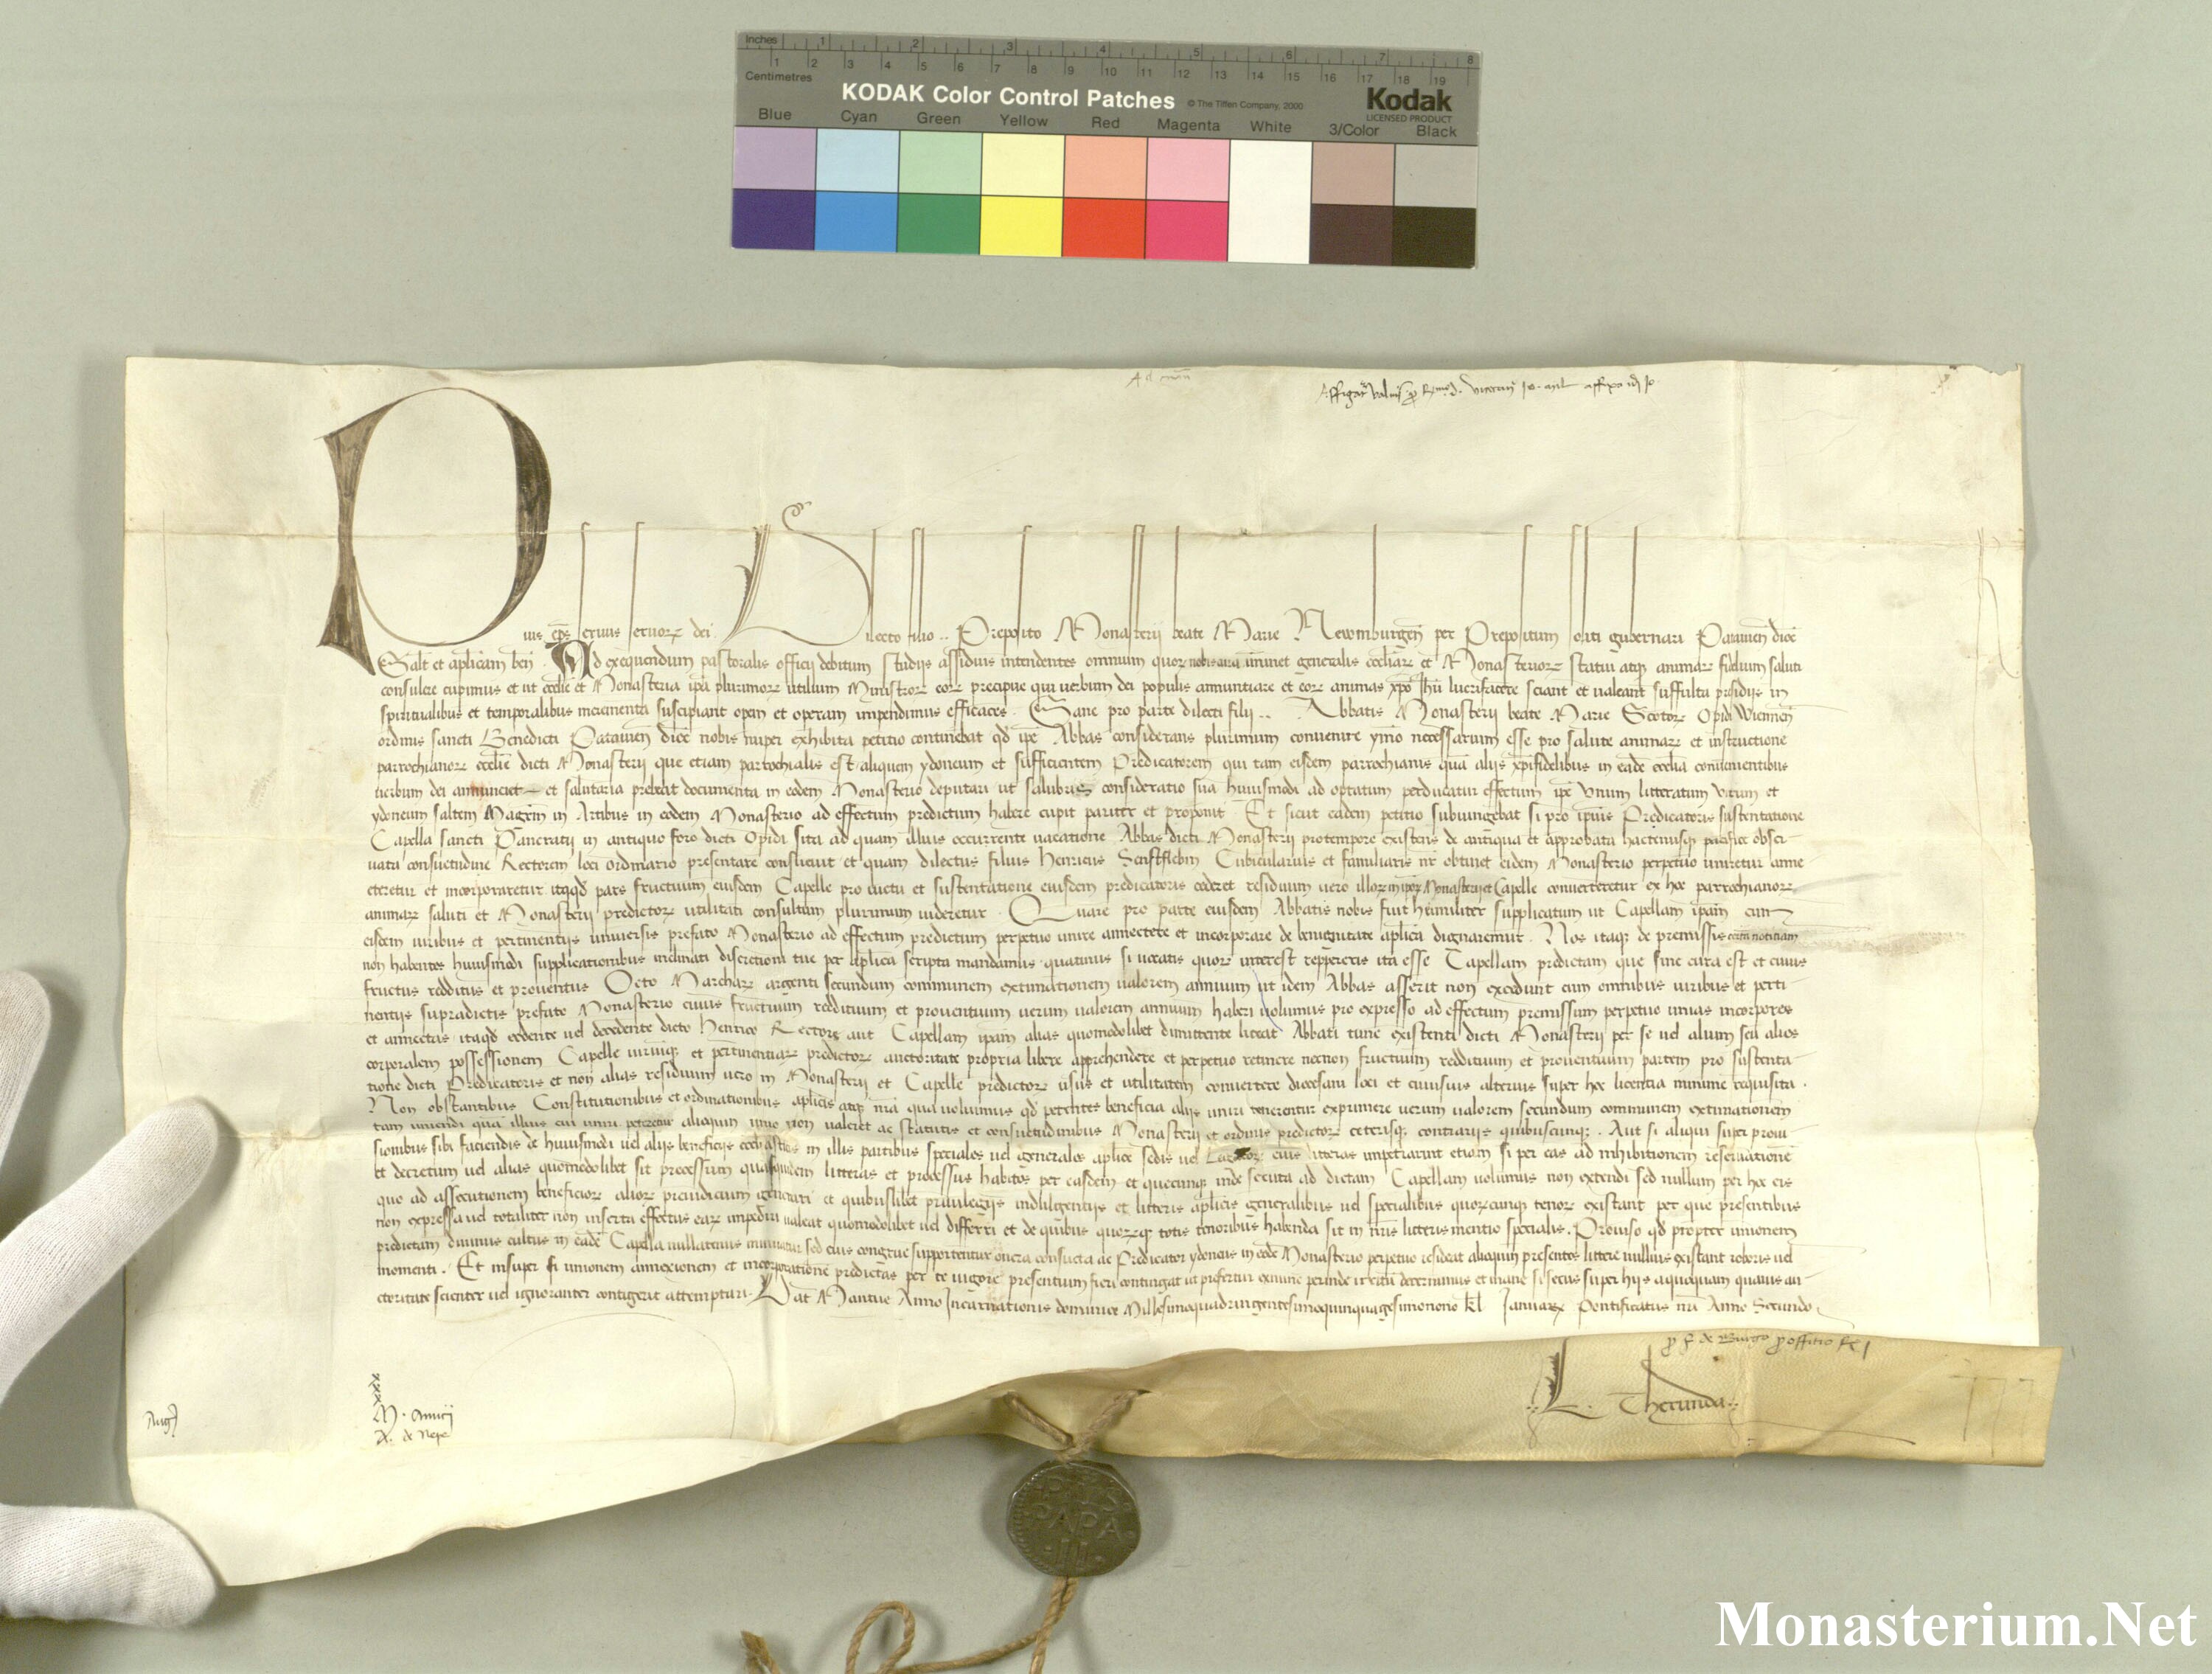 Inches 1 2 3 4 5 6 7 8
Centimetres 1 2 3 4 5 6 7 8 9 10 11 12 13 14 15 16 17 18 19
KODAK Color Control Patches © The Tiffen Company, 2000 Kodak
LICENSED PRODUCT
Blue Cyan Green Yellow Red Magenta White 3/Color Black
Pius eps seruus seruor dei Dilecto filio .. Preposito Monasterij beate Marie Newmburgen per Prepositum soliti gubernari Patauien dioc
Salt et aplicam ben. Ad exequendum pastoralis officij debitum studijs assiduis intendentes omnium quor nobis cura iminet generalis eccliar et Monasterior statui atq animar fidelium saluti
consulere cupimus et ut ecclie et Monasteria ipa plurimor utilium Ministror eor precipue qui uerbum dei populis annuntiare et eor animas xpo Jhu lucrifacere sciant et ualeant suffulta presidijs in
spiritualibus et temporalibus incrementa suscipiant opem et operam impendimus efficaces. Sane pro parte dilecti filij .. Abbatis Monasterij beate Marie Scotor Opidi Wiennen
ordinis sancti Benedicti Patauien dioc nobis nuper exhibita petitio continebat qd ipe Abbas considerans plurimum conuenire ymo necessarium esse pro salute animar et instructione
parrochianor ecclie dicti Monasterij que etiam parrochialis est aliquem ydoneum et sufficientem Predicatorem qui tam eisdem parrochianis qua alijs xpifidelibus in eade ecclia conuenientibus
uerbum dei annunciet et salutaria prebeat documenta in eodem Monasterio deputari ut salubris consideratio sua huiusmodi ad optatum perducatur effectum ipe Unum litteratum Virum et
ydoneum saltem Magrm in Artibus in eodem Monasterio ad effectum predictum habere cupit pariter et proponit. Et sicut eadem petitio subiungebat si pro ipius Predicatoris sustentatione
Capella sancti Pancratij in antiquo foro dicti Opidi sita ad quam illius occurrente uacatione Abbas dicti Monasterij protempore existens de antiqua et approbata hactenusq pacifice obser-
uata consuetudine Rectorem loci ordinario presentare consueuit et quam dilectus filius Henricus Senftleben Cubicularius et familiaris nr obtinet eidem Monasterio perpetuo uniretur anne-
cteretur et incorporaretur itaqd pars fructuum eiusdem Capelle pro uictu et sustentatione eiusdem predicatoris cederet residuum uero illor in ipor Monasterij et Capelle conuerteretur ex hoc parrochianor
animar saluti et Monasterij predictor utilitati consultum plurimum uideretur. Quare pro parte eiusdem Abbatis nobis fuit humiliter supplicatum ut Capellam ipam cum
eisdem iuribus et pertinentijs uniuersis prefato Monasterio ad effectum predictum perpetuo unire annectere et incorporare de benignitate aplica dignaremur. Nos itaq de premissis certam notitiam
non habentes huiusmodi supplicationibus inclinati discretioni tue per aplica scripta mandamus quatinus si uocatis quor interest reppereris ita esse Capellam predictam que sine cura est et cuius
fructus redditus et prouentus Octo Marchar argenti secundum communem extimationem ualorem annuum ut idem Abbas asserit non excedunt cum omnibus iuribus et perti-
nentijs supradictis prefato Monasterio cuius fructuum reddituum et prouentuum uerum ualorem annuum haberi uolumus pro expresso ad effectum premissum perpetuo unias incorpores
et annectas itaqd cedente uel decedente dicto Henrico Rectore aut Capellam ipam alias quomodolibet dimittente liceat Abbati tunc existenti dicti Monasterij per se uel alium seu alios
corporalem possessionem Capelle iuriumq et pertinentiar predictor auctoritate propria libere apprehendere et perpetuo retinere necnon fructuum reddituum et prouentuum partem pro sustenta-
tione dicti Predicatoris et non alias residuum uero in Monasterij et Capelle predictor usus et utilitatem conuertere diocesani loci et cuiusuis alterius super hoc licentia minime requisita.
Non obstantibus Constitutionibus et ordinationibus aplicis atq nra qua uoluimus qd petentes beneficia alijs uniri tenerentur exprimere uerum ualorem secundum communem extimationem
tam uniendi qua illius cui uniri peteretur alioquin unio non ualeret ac statutis et consuetudinibus Monasterij et ordinis predictor ceterisq contrarijs quibuscunq. Aut si aliqui super proui-
sionibus sibi faciendis de huiusmodi uel alijs beneficijs ecclasticis in illis partibus speciales uel generales aplice sedis uel Legator eius litteras impetrarunt etiam si per eas ad inhibitionem reseruatione
et decretum uel alias quomodolibet sit processum quasquidem litteras et processus habitos per easdem et quecunq inde secuta ad dictam Capellam uolumus non extendi sed nullum per hoc eis
quo ad assecutionem beneficior alior preiudicium generari et quibuslibet priuilegijs indulgentijs et litteris aplicis generalibus uel specialibus quorcunq tenor existant per que presentibus
non expressa uel totaliter non inserta effectus ear impediri ualeat quomodolibet uel differri et de quibus quorq totis tenoribus habenda sit in nris litteris mentio specialis. Prouiso qd propter unionem
predictam diuinus cultus in eade Capella nullatenus minuatur sed eius congrue supportentur onera consueta ac Predicator ydoneus in eode Monasterio perpetuo resideat alioquin presentes littere nullius existant roboris uel
momenti. Et insuper si unionem annexionem et incorporatione predictas per te uigore presentium fieri contingat ut prefertur exnunc perinde irritu decernimus et inane si secus super hijs a quoquam quauis au-
ctoritate scienter uel ignoranter contigerit attemptari. Dat Mantue Anno Incarnationis dominice Millesimoquadringentesimoquinquagesimonono kl Januar Pontificatus nri Anno Secundo
p f de Burgo p officio
L. Therunda
M. Amici
A. de Nepe
PIVS
PAPA
II
Monasterium.Net